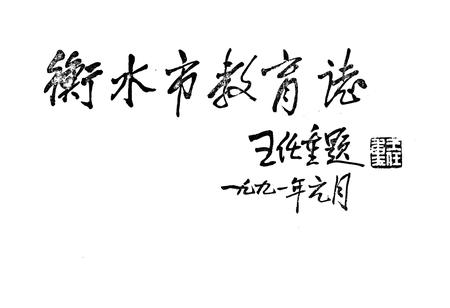 衡水市教育誌
王任重题
一九九一年元月
王任重